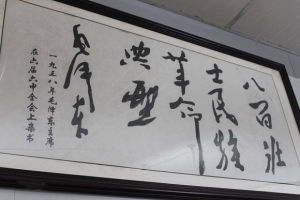 八百壮
士民族
革命
典型
毛泽东
一九三八年毛泽东主席
在六届六中全会上亲书